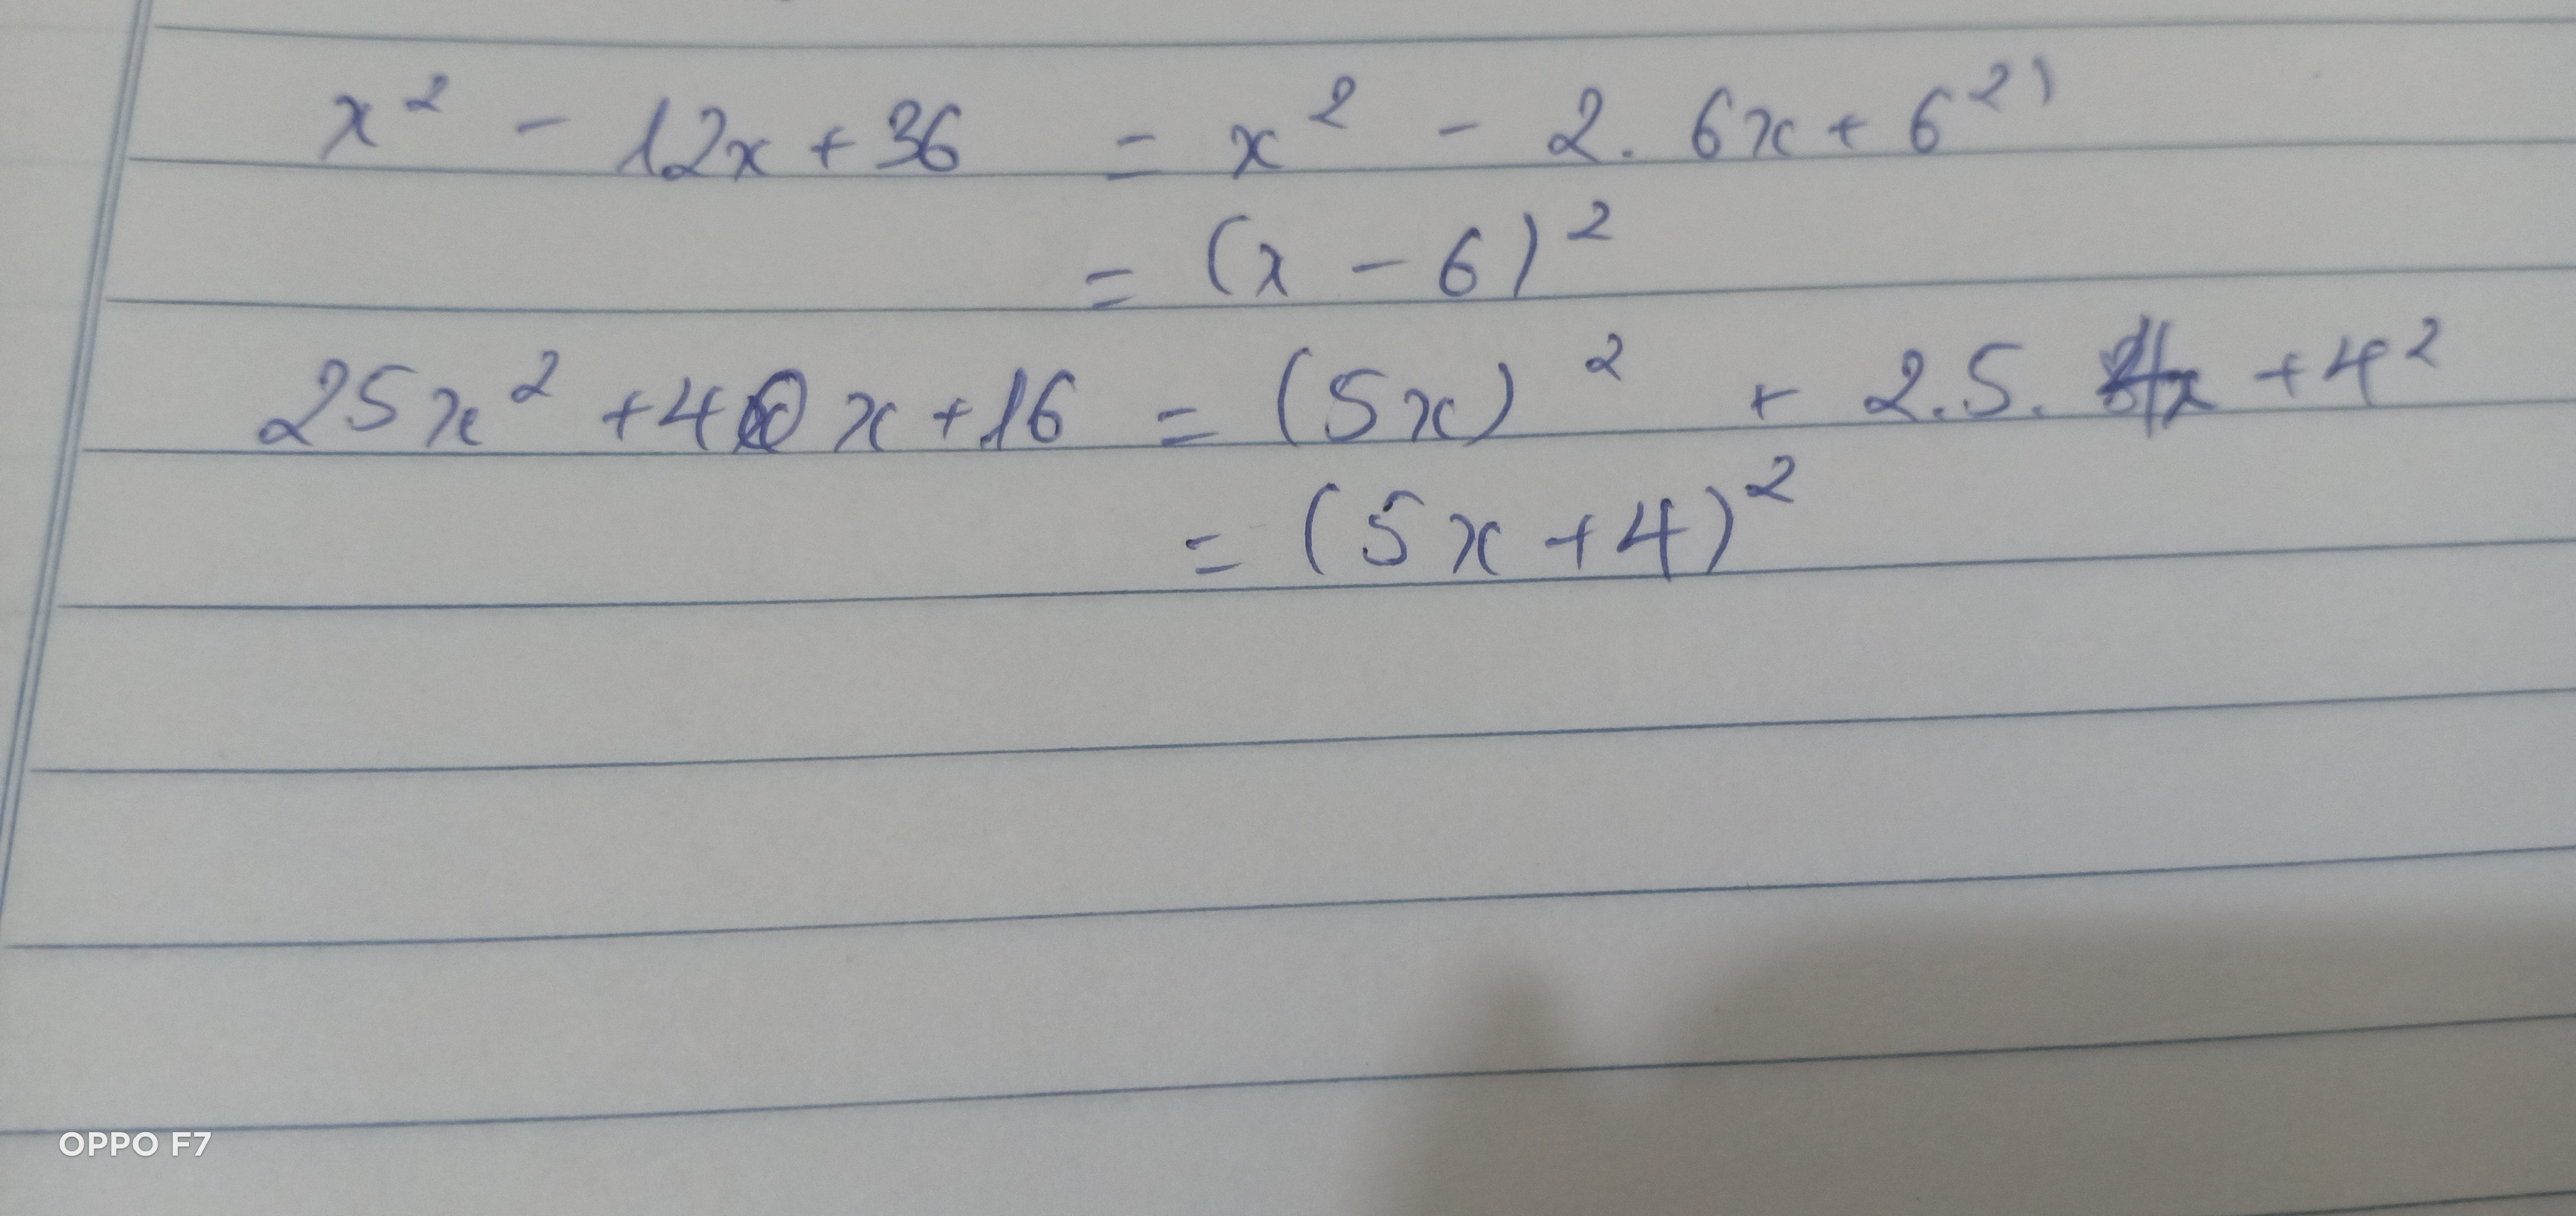 x² - 12x + 36 = x² - 2. 6x + 6²)
= (x - 6)²
25x² + 40x + 16 = (5x)² + 2.5. 4x + 4²
= (5x + 4)²
OPPO F7